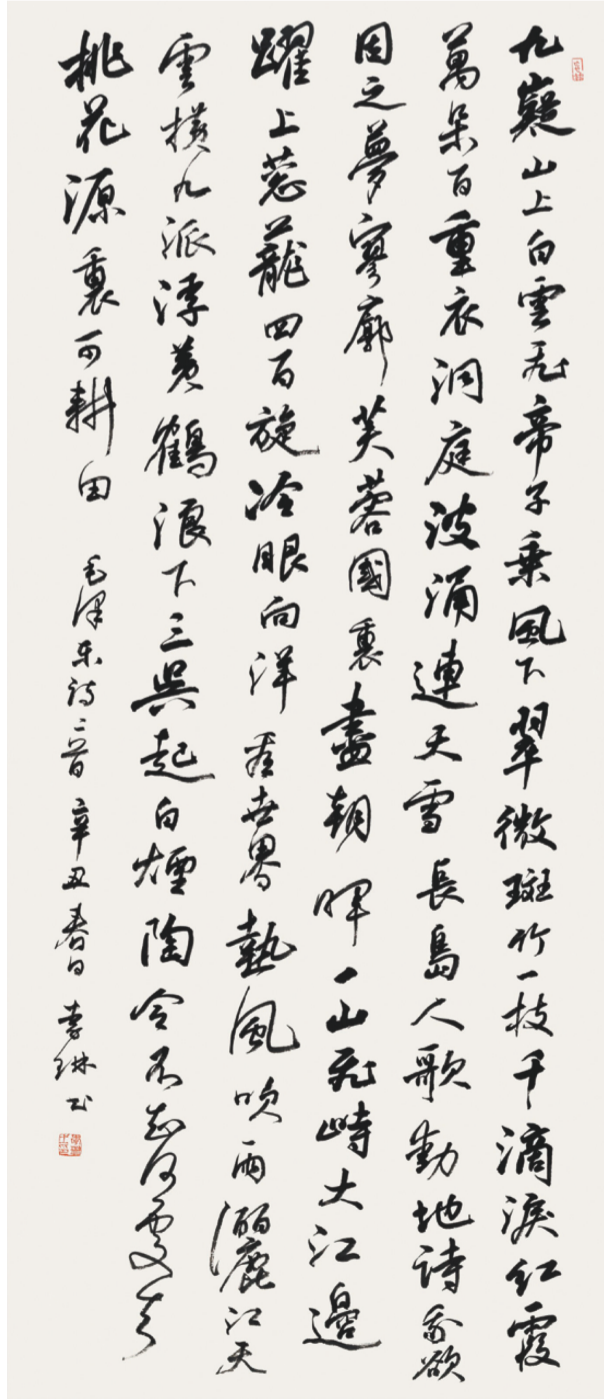 九嶷山上白雲飛帝子乘風下翠微斑竹一枝千滴淚紅霞
萬朵百重衣洞庭波涌連天雪長島人歌動地詩我欲
因之夢寥廓芙蓉國裏盡朝暉一山飛峙大江邊
躍上葱蘢四百旋冷眼向洋看世界熱風吹雨灑江天
雲橫九派浮黃鶴浪下三吳起白煙陶令不知何處去
桃花源裏可耕田 毛澤東詩二首 辛丑春日 李琳书